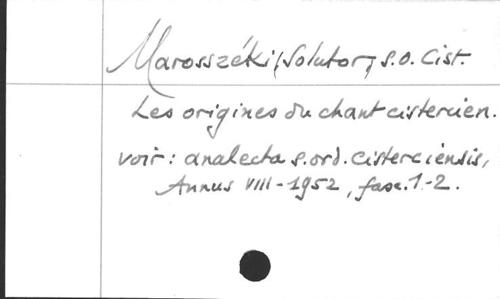 Marosszéki, Solutor, s.o. Cist.
Les origines du chant cistercien.
voir: analecta s.ord. cisterciensis,
Annus VIII-1952, fasc. 1-2.